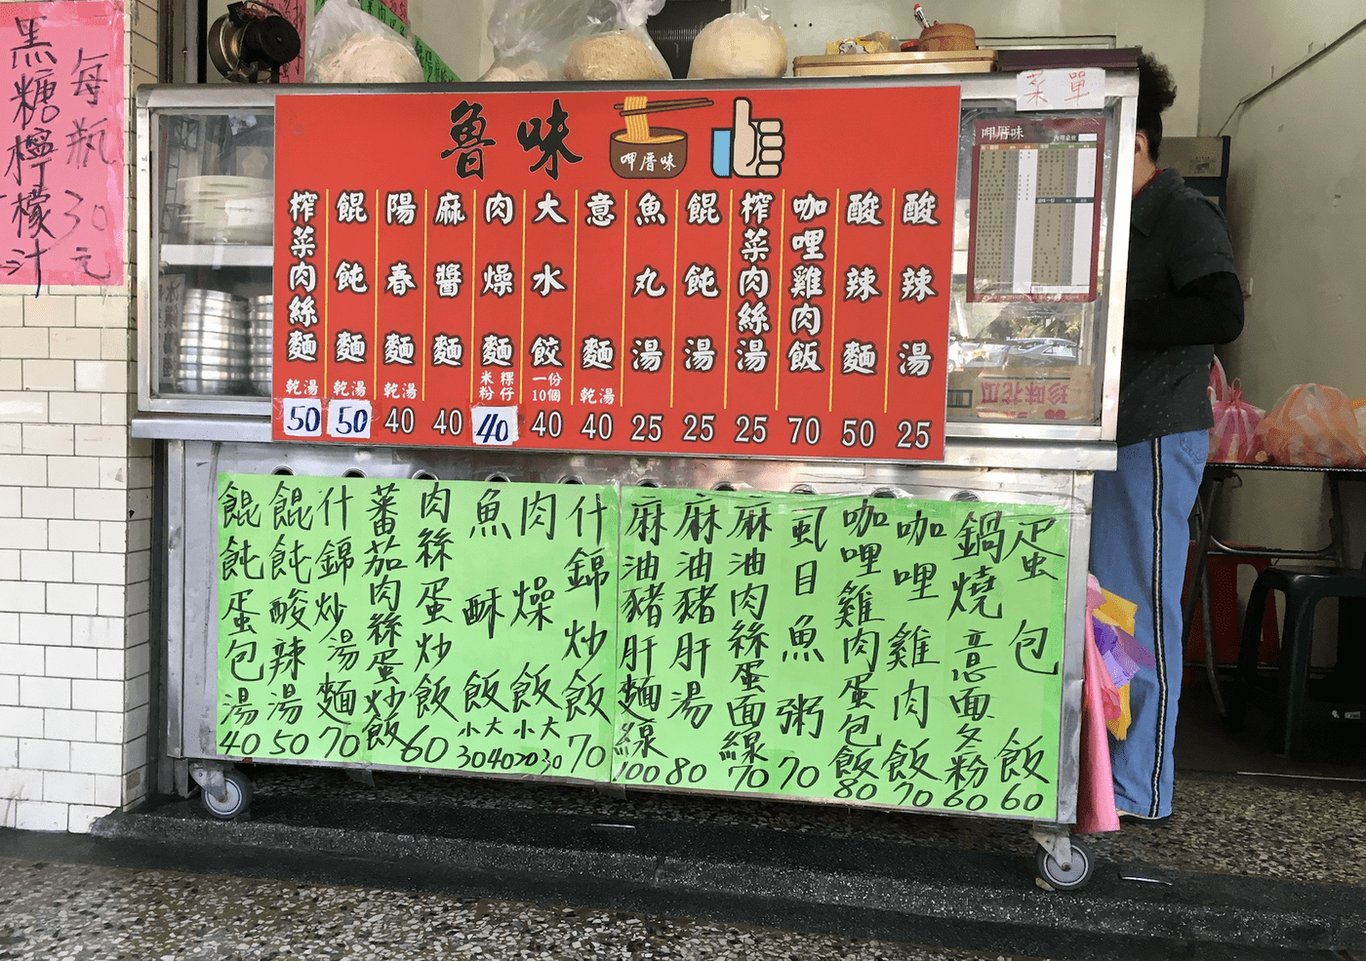 黑糖檸檬汁
每瓶30元
魯味
呷厝味
榨菜肉絲麵 乾湯 50
餛飩麵 乾湯 50
陽春麵 乾湯 40
麻醬麵 40
肉燥麵 米粉 粿仔 40
大水餃 一份10個 40
意麵 乾湯 40
魚丸湯 25
餛飩湯 25
榨菜肉絲湯 25
咖哩雞肉飯 70
酸辣麵 50
酸辣湯 25
菜單
呷厝味
珍味花瓜
餛飩蛋包湯 40
餛飩酸辣湯 50
什錦炒湯麵 70
蕃茄肉絲蛋炒飯
肉絲蛋炒飯 60
魚酥飯 小30 大40
肉燥飯 小20 大30
什錦炒飯 70
麻油豬肝麵線 100
麻油豬肝湯 80
麻油肉絲蛋面線 70
虱目魚粥 70
咖哩雞肉蛋包飯 80
咖哩雞肉飯 70
鍋燒意面冬粉 60
蛋包飯 60